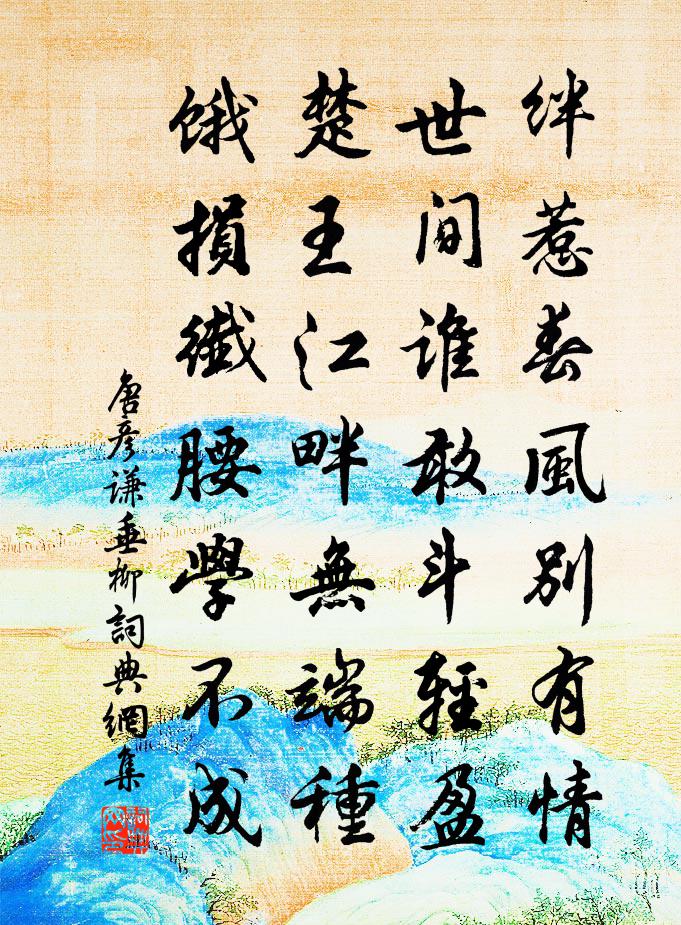 絆惹春風別有情
世間誰敢斗輕盈
楚王江畔無端種
餓損纖腰學不成
唐彥謙垂柳詞典網集